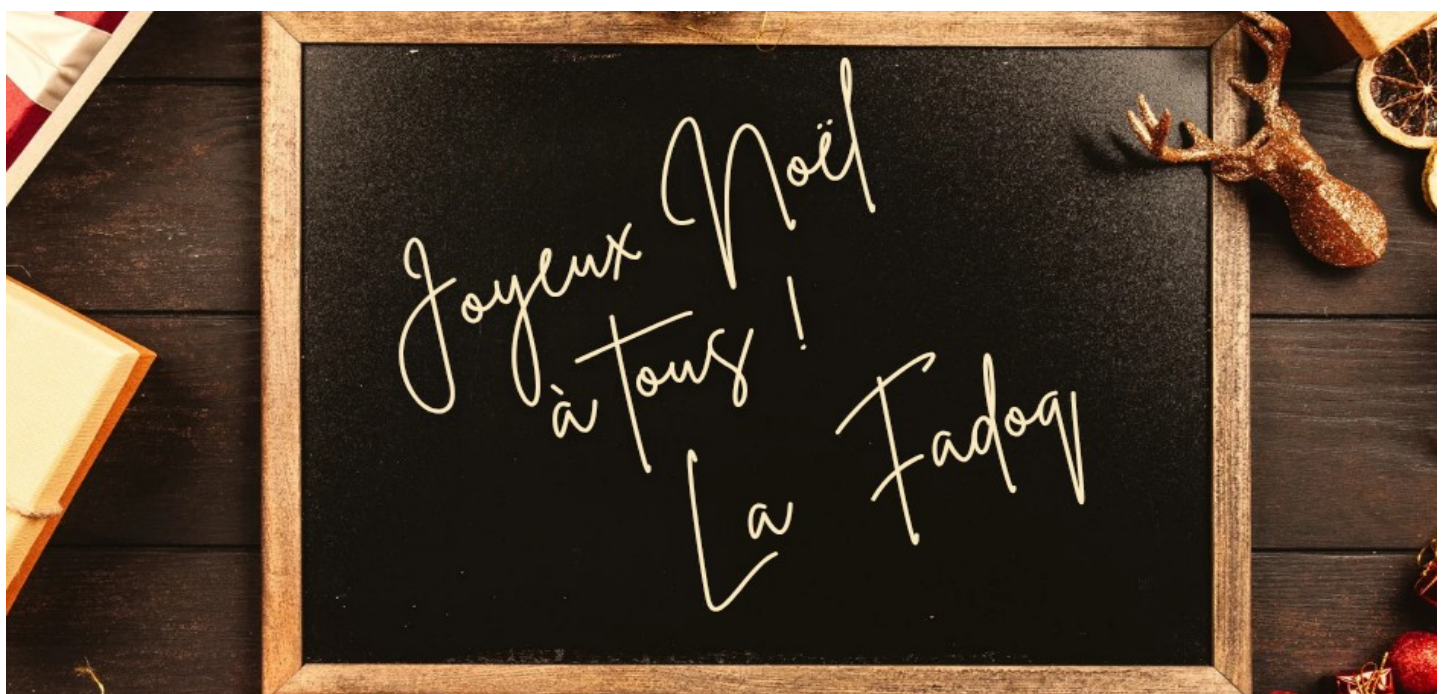 Joyeux Noël
à tous !
La Fadoq